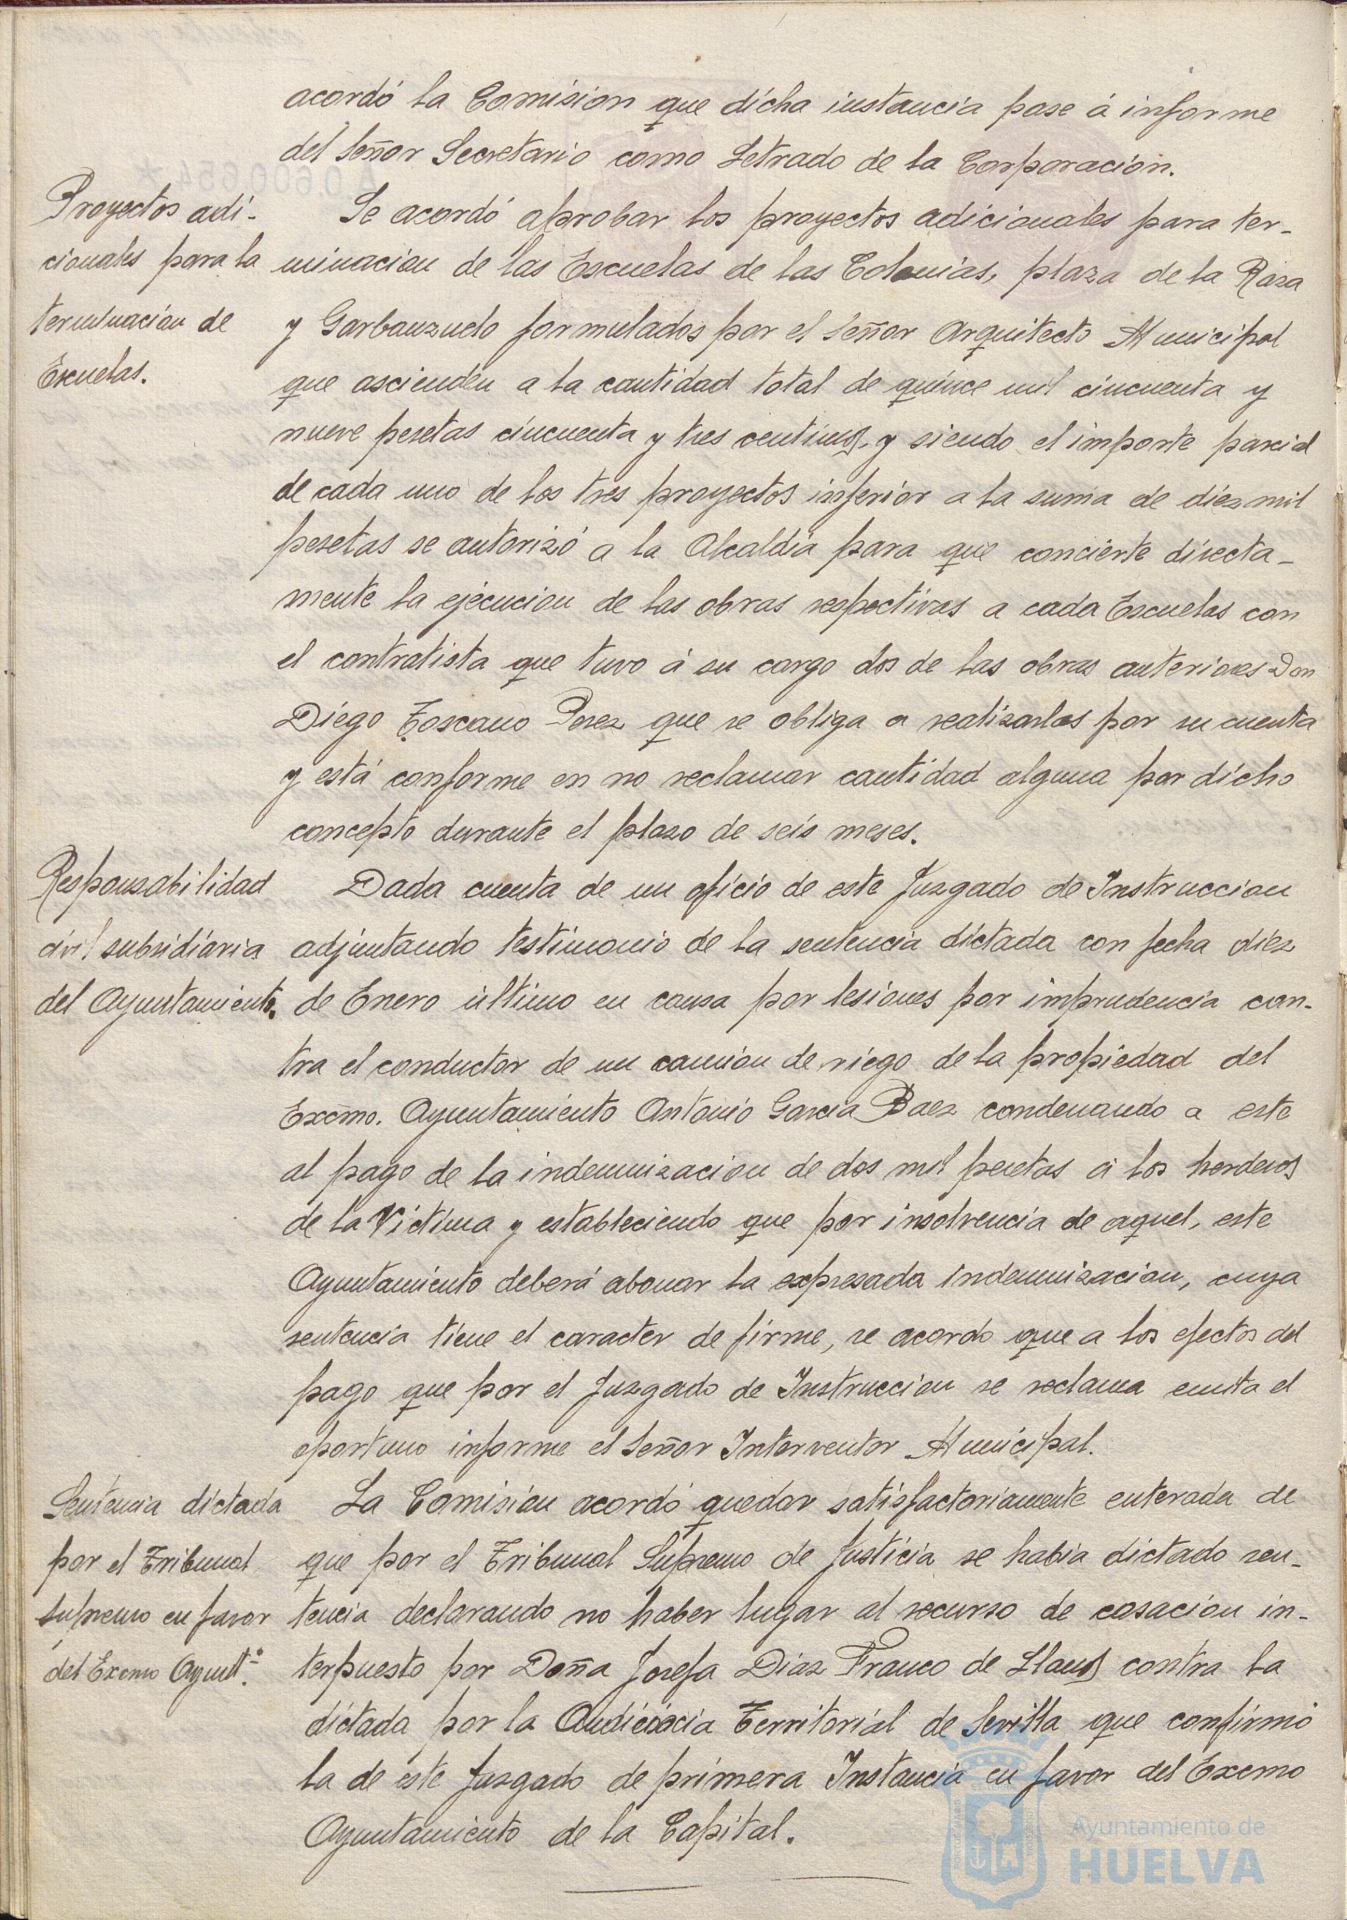 acordó la Comision que dicha instancia pase á informe
del Señor Secretario como Letrado de la Corporacion.
Proyectos adi-
cionales para la
terminacion de
Escuelas.
Se acordó aprobar los proyectos adicionales para ter-
minacion de las Escuelas de las Colonias, plaza de la Raza
y Garbanzuelo formulados por el Señor Arquitecto Municipal
que ascienden a la cantidad total de quince mil cincuenta y
nueve pesetas cincuenta y tres centimos, y siendo el importe parcial
de cada uno de los tres proyectos inferior a la suma de diez mil
pesetas se autorizó a la Alcaldía para que concierte directa-
mente la ejecucion de las obras respectivas a cada Escuelas con
el contratista que tuvo á su cargo dos de las obras anteriores Don
Diego Toscano Perez que se obliga a realizarlas por su cuenta
y está conforme en no reclamar cantidad alguna por dicho
concepto durante el plazo de seis meses.
Responsabilidad
civil subsidiaria
del Ayuntamiento.
Dada cuenta de un oficio de este Juzgado de Instruccion
adjuntando testimonio de la sentencia dictada con fecha diez
de Enero último en causa por lesiones por imprudencia con-
tra el conductor de un camion de riego de la propiedad del
Excmo. Ayuntamiento Antonio Garcia Baez condenando a este
al pago de la indemnizacion de dos mil pesetas a los herderos
de la Victima y estableciendo que por insolvencia de aquel, este
Ayuntamiento deberá abonar la expresada indemnizacion, cuya
sentencia tiene el caracter de firme, se acordo que a los efectos del
pago que por el Juzgado de Instruccion se reclama emita el
oportuno informe el Señor Interventor Municipal.
Sentencia dictada
por el Tribunal
Supremo en favor
del Excmo Ayunt.º
La Comision acordó quedar satisfactoriamente enterada de
que por el Tribunal Supremo de Justicia se habia dictado sen-
tencia declarando no haber lugar al recurso de casacion in-
terpuesto por Doña Josefa Diaz Franco de Llanos contra la
dictada por la Audiencia Territorial de Sevilla que confirmó
la de este Juzgado de primera Instancia en favor del Excmo
Ayuntamiento de la Capital.
Ayuntamiento de
HUELVA